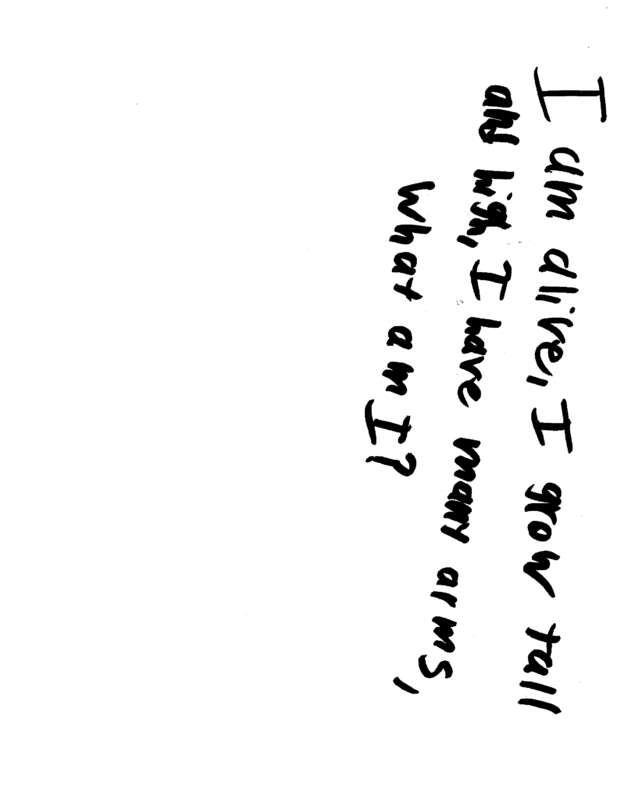 I am alive, I grow tall
and high, I have many arms,
what am I?